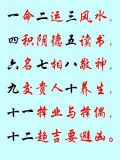 一命二运三风水，
四积阴德五读书，
六名七相八敬神，
九交贵人十养生，
十一择业与择偶，
十二趋吉要避凶。